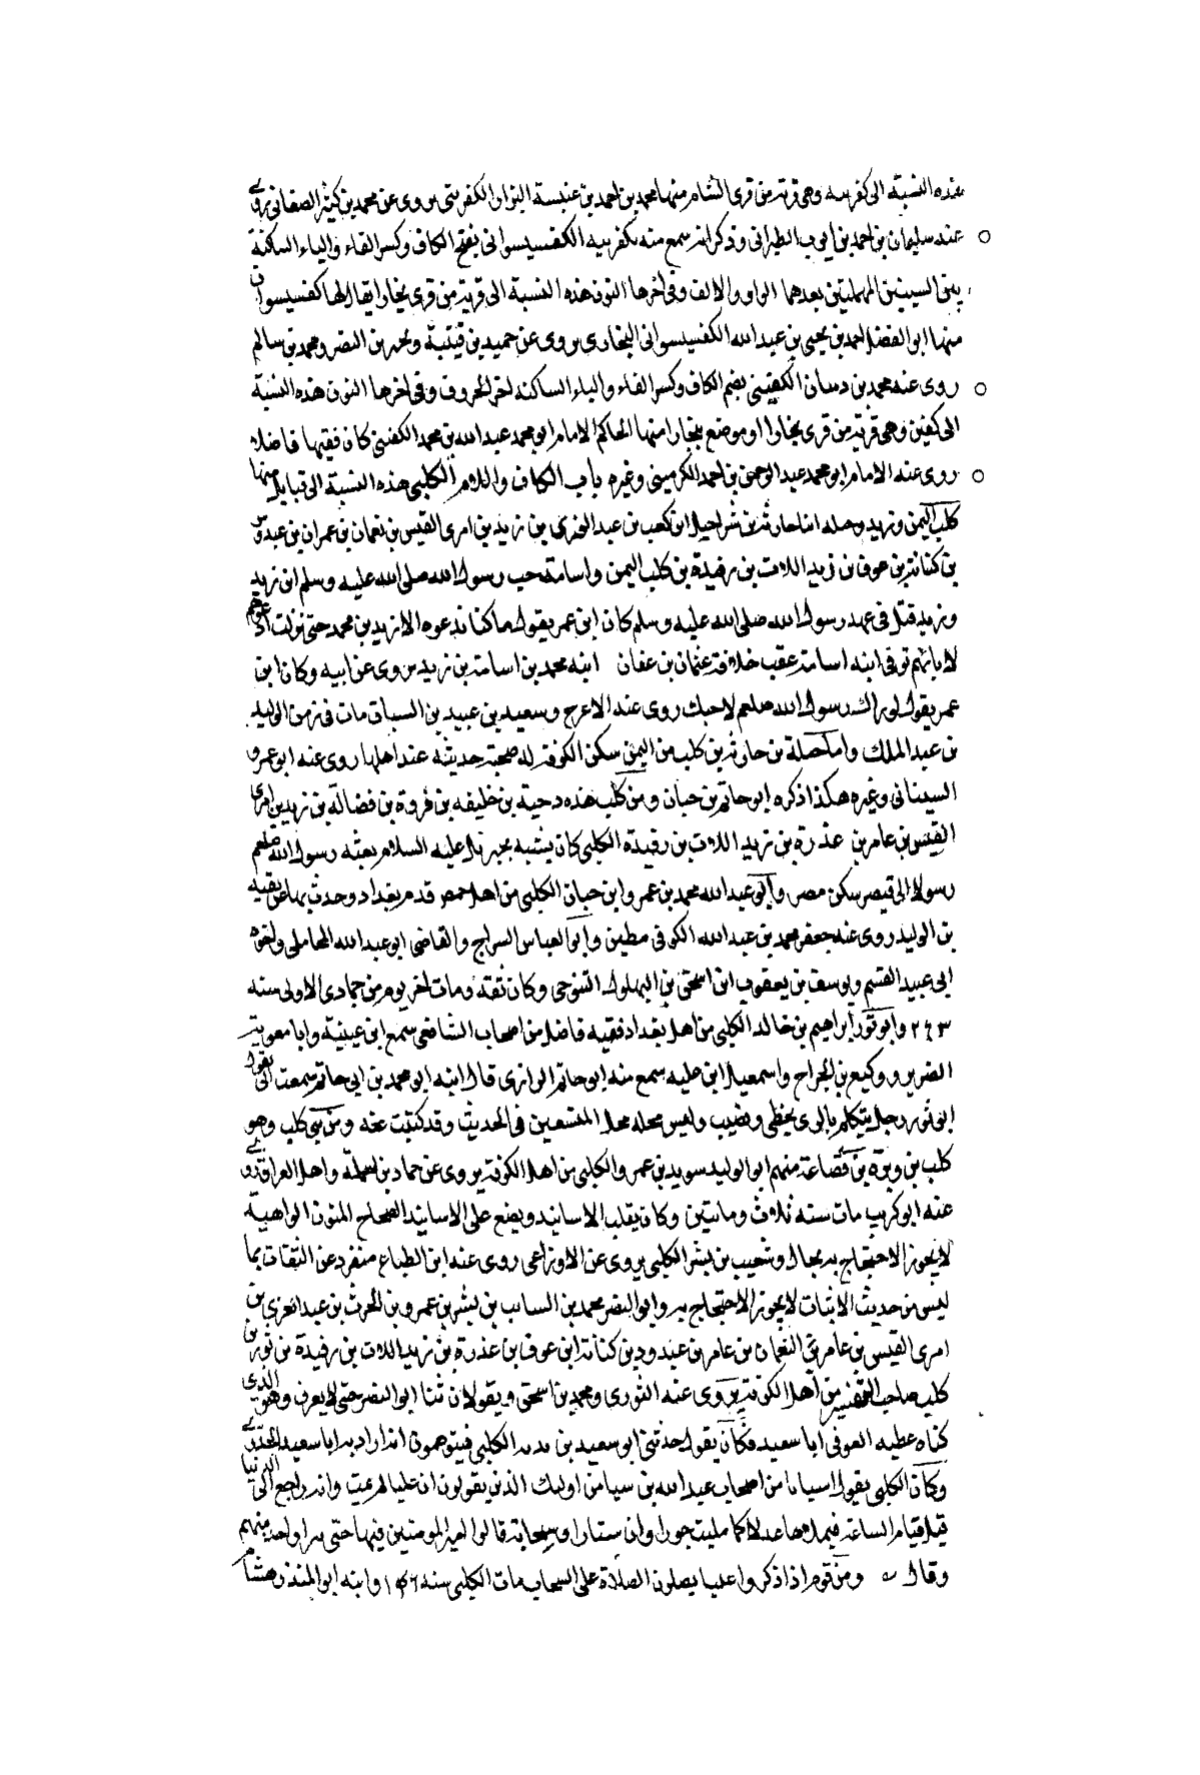 هذه النسبة الى كفربيه وهى قرية من قرى الشام منها محمد بن احمد بن عنبسة البزاز الكفربيى يروى عن محمد بن كثير الصغانى روى
عنه سليمان بن احمد بن ايوب الطبرانى وذكر انه سمع منه بكفربيه الكفسيسوانى بفتح الكاف وكسر الفاء والياء الساكنة
بين السينين المهملتين بعدهما الواو والالف وفى اخرها النون هذه النسبة الى قرية من قرى بخارا يقال لها كفسيسوان
منها ابو الفضل احمد بن يحيى بن عبد الله الكفسيسوانى البخارى يروى عن حميد بن قتيبة ومحمد بن النضر ومحمد بن سالم
روى عنه محمد بن الكفينى بضم الكاف وكسر الفاء والياء الساكنه اخر الحروف وفى اخرها النون هذه النسبة
الى كفين وهى قرية من قرى بخارا او موضع ببخارا منها الحاكم الامام ابو محمد عبد الله بن محمد الكفينى كان فقيها فاضلا
روى عنه الامام ابو محمد عبد الرحمن بن احمد الكرمينى وغيره باب الكاف واللام الكلبى هذه النسبة الى قبايل منها
كلب اليمن وزيد وجبله ابنا حارثة بن شراحيل ابن كعب بن عبد العزى بن زيد بن امرى القيس بن نعمان بن عمران بن عبدوس
بن كنانة بن عوف بن زيد اللات بن رفيدة بن كلب اليمن واسامة حب رسول الله صلى الله عليه وسلم ابن زيد
وزيد قتل فى عهد رسول الله صلى الله عليه وسلم كان ابن عمر يقول ما كنا ندعوه الا زيد بن محمد حتى نزلت ادعوهم
لابائهم توفى ابنه اسامة عقب خلافة عثمان بن عفان ابنه محمد بن اسامة بن زيد يروى عن ابيه وكان ابن
عمر يقول لو راك رسول الله صلعم لاحبك روى عنه الاعرج وسعيد بن عبيد بن السباق مات فى زمن الوليد
بن عبد الملك واما حملة بن حارثة بن كلب من اليمن سكن الكوفة له صحبة حديثه عند اهلها روى عنه ابو عمرو
السيبانى وغيره هكذا ذكره ابو حاتم بن حبان ومن كلب هذه دحية بن خليفه بن فروة بن فضالة بن زيد بن امرى
القيس بن عامر بن عذرة بن زيد اللات بن رفيدة الكلبى كان يشبه بجبريل عليه السلام بعثه رسول الله صلعم
رسولا الى قيصر سكن مصر وابو عبد الله محمد بن عمرو ابن حبان الكلبى من اهل حمص قدم بغداد وحدث بها عن بقيه
بن الوليد روى عنه جعفر محمد بن عبد الله الكوفى مطين وابو العباس السراج والقاضى ابو عبد الله المحاملى واخوه
ابى عبيد القسم ويوسف بن يعقوب ابن اسحق بن البهلول التنوخى وكان ثقة ومات اخر يوم من جمادى الاولى سنه
٢٤٣ وابو ثور ابراهيم بن خالد الكلبى من اهل بغداد فقيه فاضل من اصحاب الشافعى سمع ابن عيينة وابا معوية
الضرير ووكيع بن الجراح واسمعيل ابن عليه سمع منه ابو حاتم الرازى قال ابنه ابو محمد بن ابى حاتم سمعت ابى يقول
ابو ثور رجل يتكلم بالراى يخطى ويصيب وليس محله محل المتسعين فى الحديث وقد كتبت عنه ومن بنى كلب وهو
كلب بن وبرة بن قضاعة منهم ابو الوليد سويد بن عمرو الكلبى من اهل الكوفة يروى عن حماد بن سلمة واهل العراق روى
عنه ابو كريب مات سنه ثلاث ومائتين وكان يقلب الاسانيد ويضع على الاسانيد الصحاح المتون الواهية
لا يجوز الاحتجاج به بحال وشعيب بن بشر الكلبى يروى عن الاوزاعى روى عنه ابن الطباع منفرد عن الثقات بما
ليس من حديث الاثبات لا يجوز الاحتجاج به وابو النضر محمد بن السايب بن بشر بن عمرو بن الحرث بن عبد العزى بن
امرى القيس بن عامر بن النعمان بن عامر بن عبد ود بن كنانة ابن عوف بن عذرة بن زيد اللات بن رفيدة بن ثور بن
كلب صاحب التفسير من اهل الكوفة يروى عنه الثورى ومحمد بن اسحق ويقولان ثنا ابو النضر حتى لا يعرف وهو الذى
كناه عطيه العوفى ابا سعيد فكان يقول حدثنى ابو سعيد بن الكلبى فيتوهمون انه اراد به ابا سعيد الخدرى
وكان الكلبى يقول من اصحاب عبد الله بن سبا من اوليك الذين يقولون ان عليا لم يمت وانه راجع الى الدنيا
قبل قيام الساعة فيملاها عدلا كما مليت جورا وان قالوا امير المومنين فيها حتى واحد منهم
وقال ومن قوم اذا ذكروا عليا يصلون الصلاة على السحاب مات الكلبى سنه ١٤٦ وابنه ابو المنذر هشام